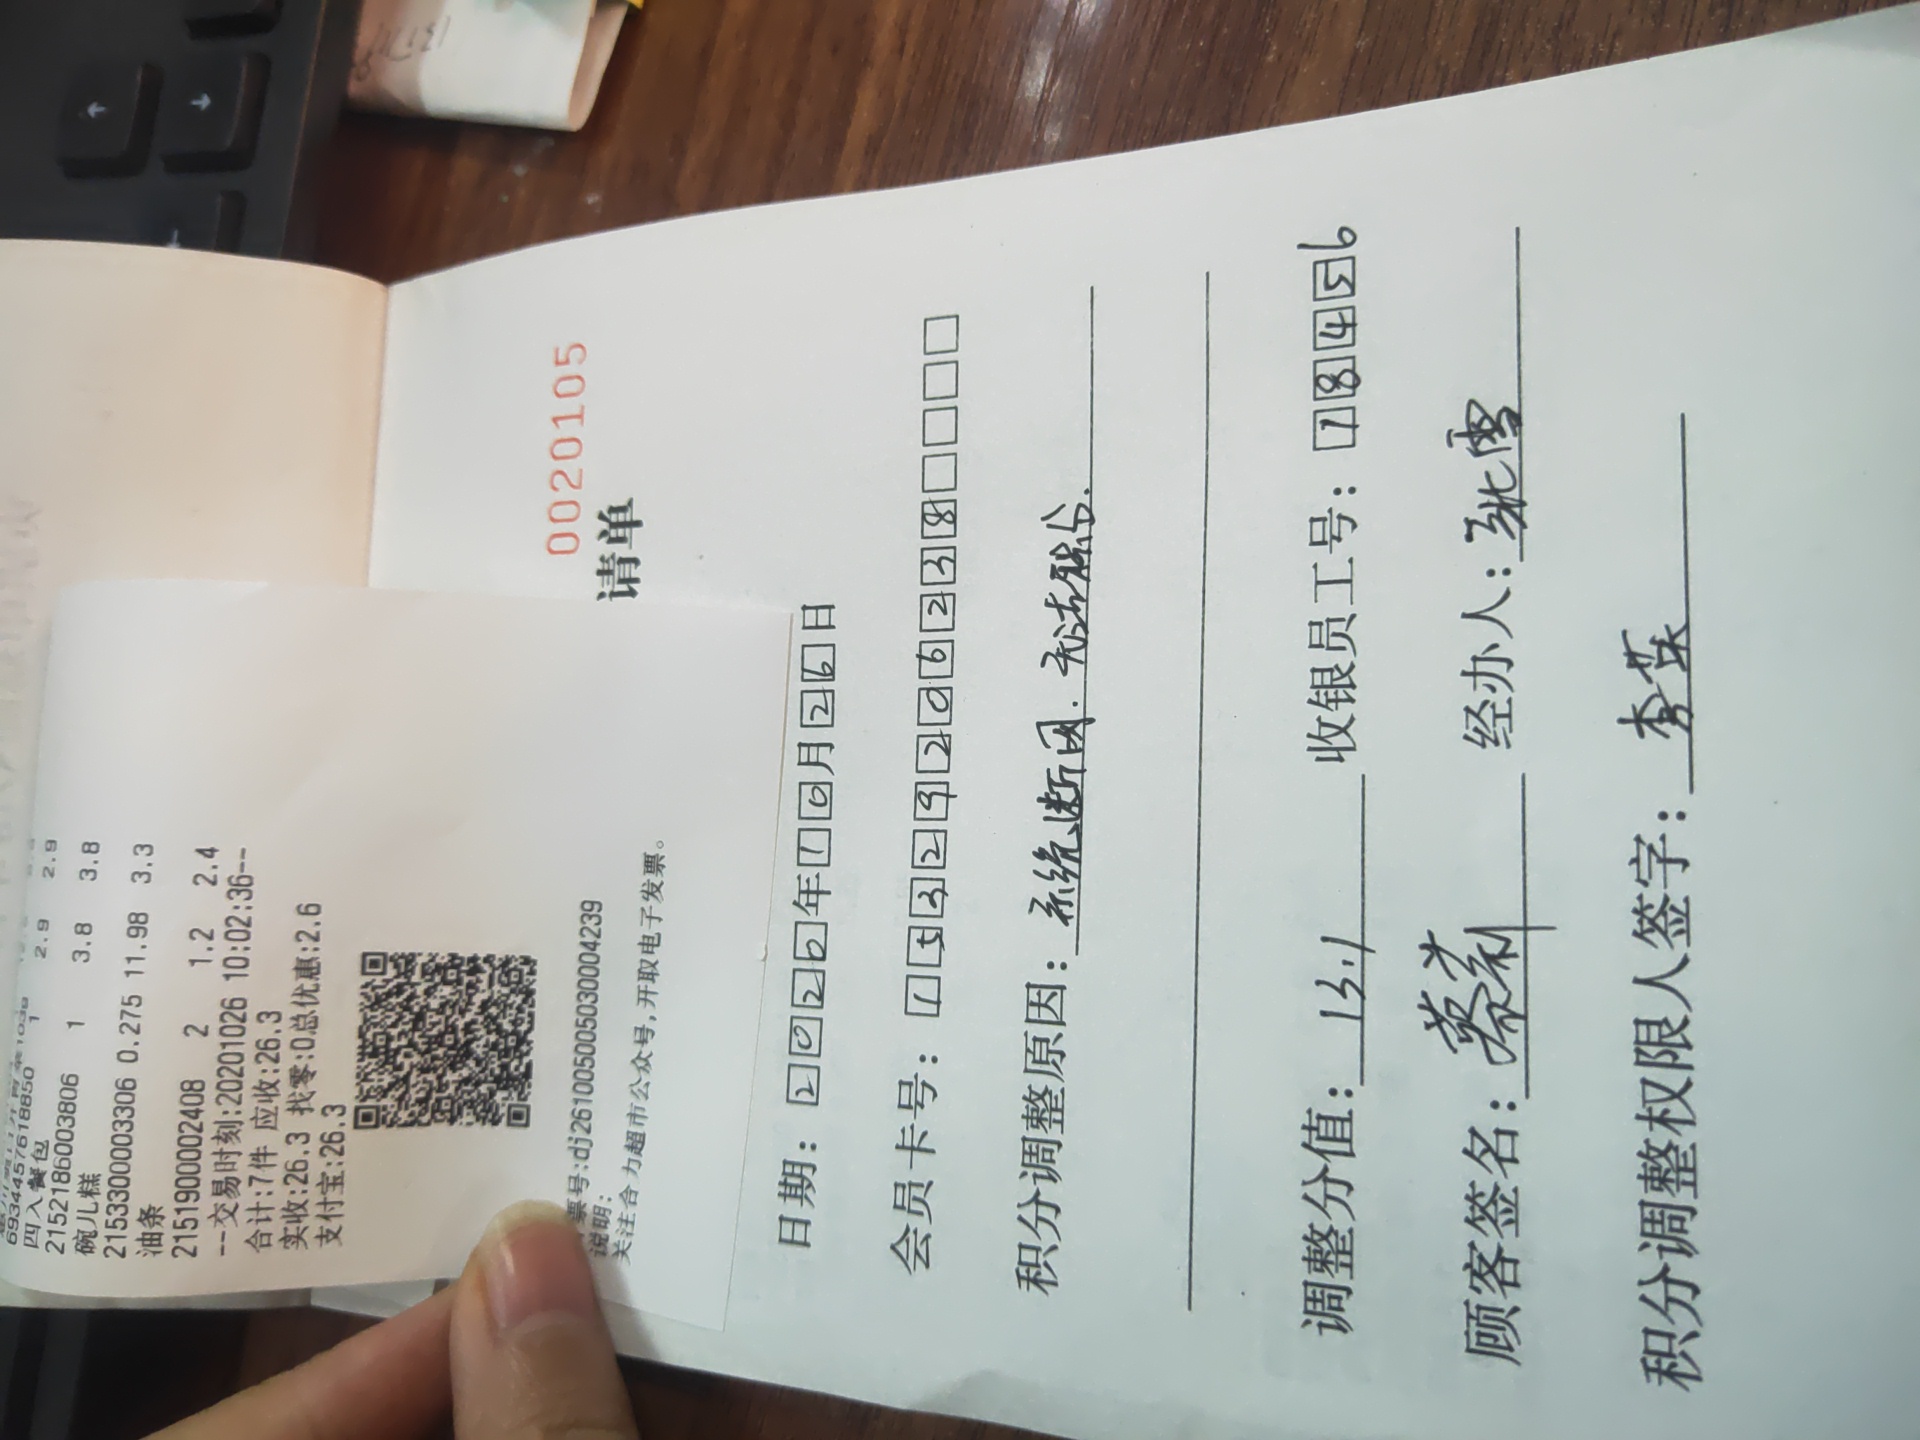 6934445761885​0 1 2.9 2.9
四入餐包
2152186003806 1 3.8 3.8
碗儿糕
2153300003306 0.275 11.98 3.3
油条
2151900002408 2 1.2 2.4
--交易时刻:20201026 10:02:36--
合计:7件 应收:26.3
实收:26.3 找零:0总优惠:2.6
支付宝:26.3
票号:dj26100500503000​4239
说明:
关注合力超市公众号,开取电子发票。
0020105
请单
日期：2020年10月26日
会员卡号：15329206238
积分调整原因：系统断网.无法积分.
调整分值：13.1 收银员工号：78456
顾客签名： 经办人：张雪
积分调整权限人签字：